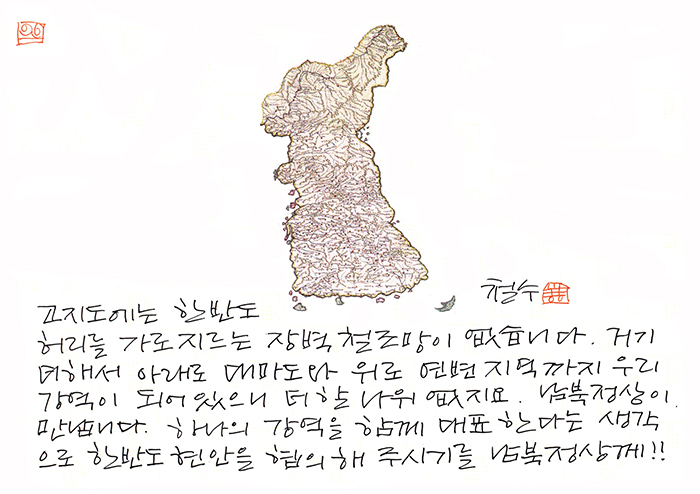 철수
고지도에는 한반도
허리를 가로지르는 장벽 철조망이 없습니다. 거기
더해서 아래로 대마도와 위로 연변 지역까지 우리
강역이 되어 있으니 더 할 나위 없지요. 남북정상이
만납니다. 하나의 강역을 함께 대표 한다는 생각
으로 한반도 현안을 협의해 주시기를 남북정상께!!